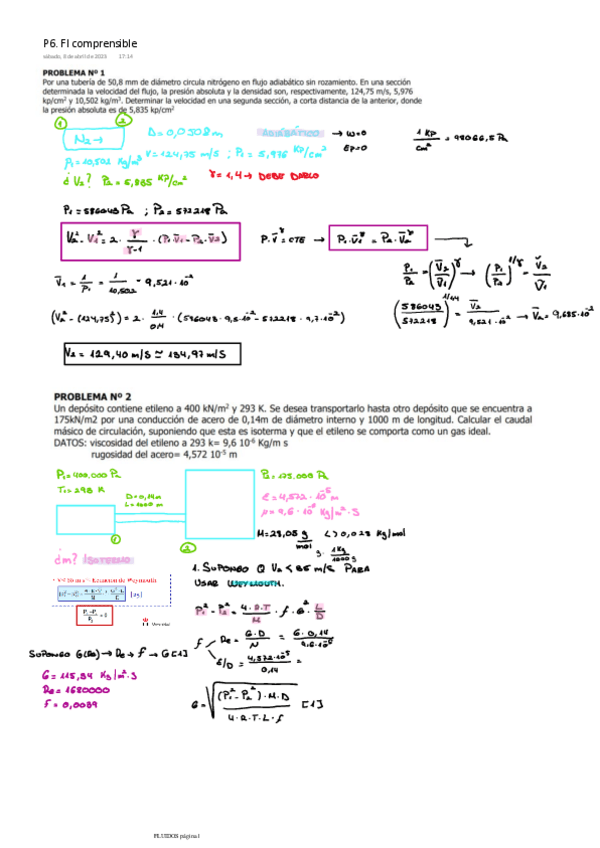 P6. Fl comprensible
sábado, 8 de abril de 2023 17:14
PROBLEMA Nº 1
Por una tubería de 50,8 mm de diámetro circula nitrógeno en flujo adiabático sin rozamiento. En una sección
determinada la velocidad del flujo, la presión absoluta y la densidad son, respectivamente, 124,75 m/s, 5,976
kp/cm² y 10,502 kg/m³. Determinar la velocidad en una segunda sección, a corta distancia de la anterior, donde
la presión absoluta es de 5,835 kp/cm²
① ②
N₂ →
D = 0,0508m
ADIABÁTICO → W=0
EP=0
1 KP/cm² = 98066,5 Pa
ρ₁ = 10,502 Kg/m³ V = 124,75 m/s ; P₁ = 5,976 KP/cm²
¿V₂? P₂ = 5,835 KP/cm² γ = 1,4 → DEBE DARLO
P₁ = 586043 Pa ; P₂ = 572218 Pa
V₂² - V₁² = 2 · γ/γ-1 · (P₁·V̄₁ - P₂·V̄₂)
P·V̄^γ = CTE → P₁·V̄₁^γ = P₂·V̄₂^γ
P₁/P₂ = (V̄₂/V̄₁)^γ → (P₁/P₂)^1/γ = V̄₂/V̄₁
V̄₁ = 1/ρ₁ = 1/10,502 = 9,521·10⁻²
(V₂² - (124,75)²) = 2 · 1,4/0,4 · (586043 · 9,5·10⁻² - 572218 · 9,7·10⁻²)
(586043/572218)^1/1,4 = V̄₂/9,521·10⁻² → V̄₂ = 9,685·10⁻²
V₂ = 129,40 m/s ≃ 134,97 m/s
PROBLEMA Nº 2
Un depósito contiene etileno a 400 kN/m² y 293 K. Se desea transportarlo hasta otro depósito que se encuentra a
175kN/m2 por una conducción de acero de 0,14m de diámetro interno y 1000 m de longitud. Calcular el caudal
másico de circulación, suponiendo que esta es isoterma y que el etileno se comporta como un gas ideal.
DATOS: viscosidad del etileno a 293 k= 9,6 10⁻⁶ Kg/m s
rugosidad del acero= 4,572 10⁻⁵ m
P₁ = 400.000 Pa
T₁ = 293 K
D = 0,14m
L = 1000 m
P₂ = 175.000 Pa
ε = 4,572 · 10⁻⁵ m
μ = 9,6 · 10⁻⁶ Kg/m·s
M = 28,05 g/mol
↳ 0,028 Kg/mol
g · 1 Kg/1000 g
① ②
¿ṁ? ISOTERMO
1. SUPONGO Q V₂ < 35 m/s PARA
USAR WEYMOUTH.
P₁² - P₂² = 4·R·T/M · f · G² · L/D
f
Re = G·D/μ = G·0,14/9,6·10⁻⁶
ε/D = 4,572·10⁻⁵/0,14 =
SUPONGO G(Re) → Re → f → G [1]
G = 115,94 Kg/m²·s
Re = 1680000
f = 0,0039
G = √((P₁² - P₂²)·M·D/4·R·T·L·f) [1]
FLUIDOS página 1